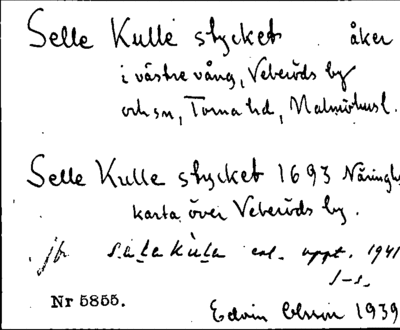 Selle Kulle stycket åker
i västre vång, Veberöds by
och sn, Torna hd, Malmöhusl.
Selle Kulle stycket 1693
karta över Veberöds by.
jfr enl. uppt. 1941
Nr 5855.
Edvin Olsson 1939